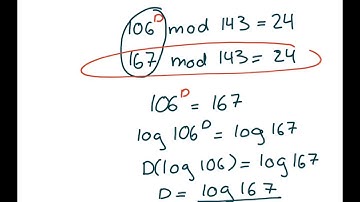 106^D mod 143 = 24
167 mod 143 = 24
106^D = 167
log 106^D = log 167
D(log 106) = log 167
D = log 167